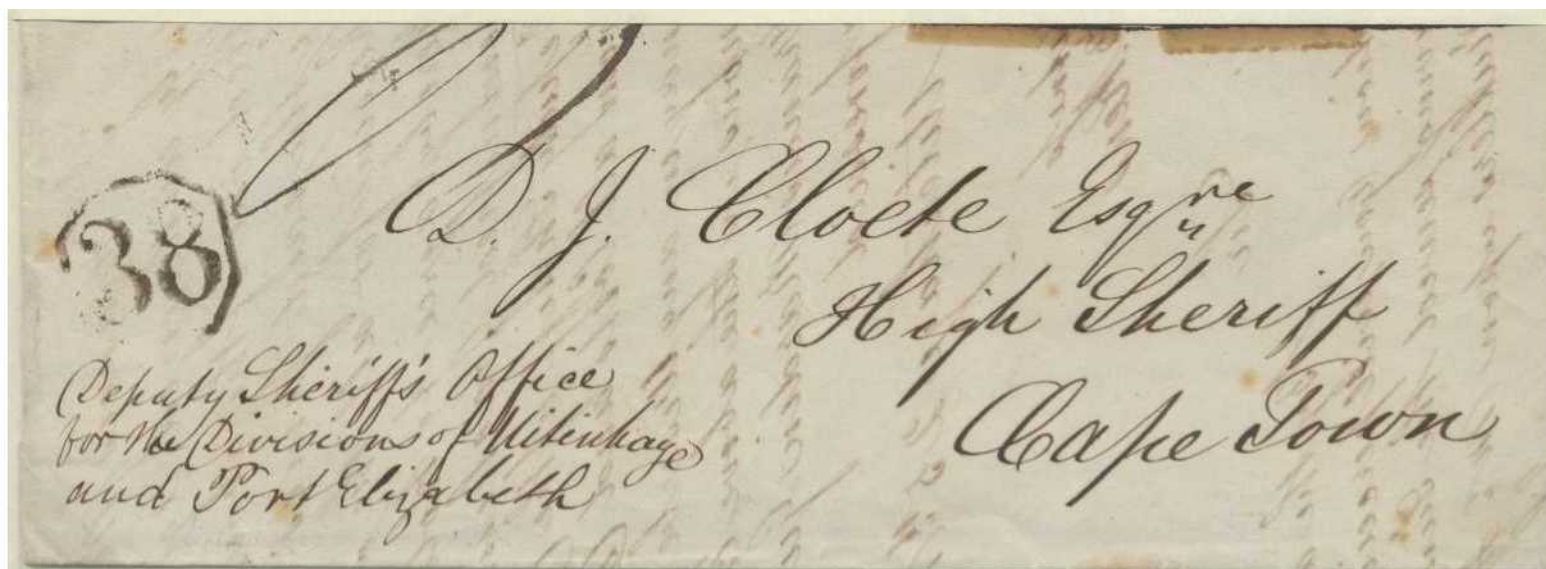 38
D. J. Cloete Esqre
High Sheriff
Cape Town
Deputy Sheriff's Office
for the Divisions of Uitenhage
and Port Elizabeth